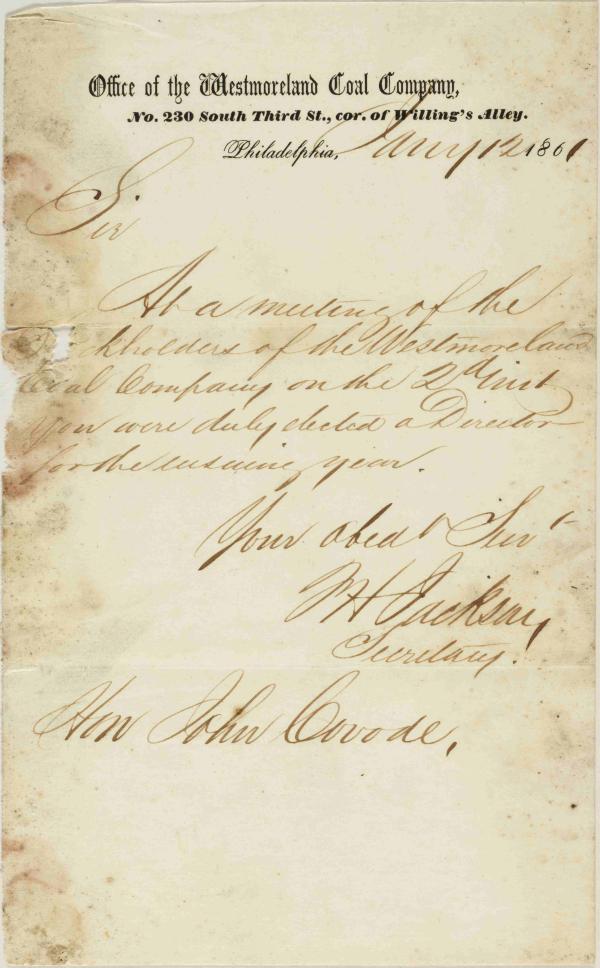 Office of the Westmoreland Coal Company,
No. 230 South Third St., cor. of Willing's Alley.
Philadelphia, Jany 12 1861
Sir
At a meeting of the
ckholders of the Westmoreland
Coal Company on the 2d inst
you were duly elected a Director
for the ensuing year.
Your obedt Servt
Jackson,
Secretary.
Hon John Covode,